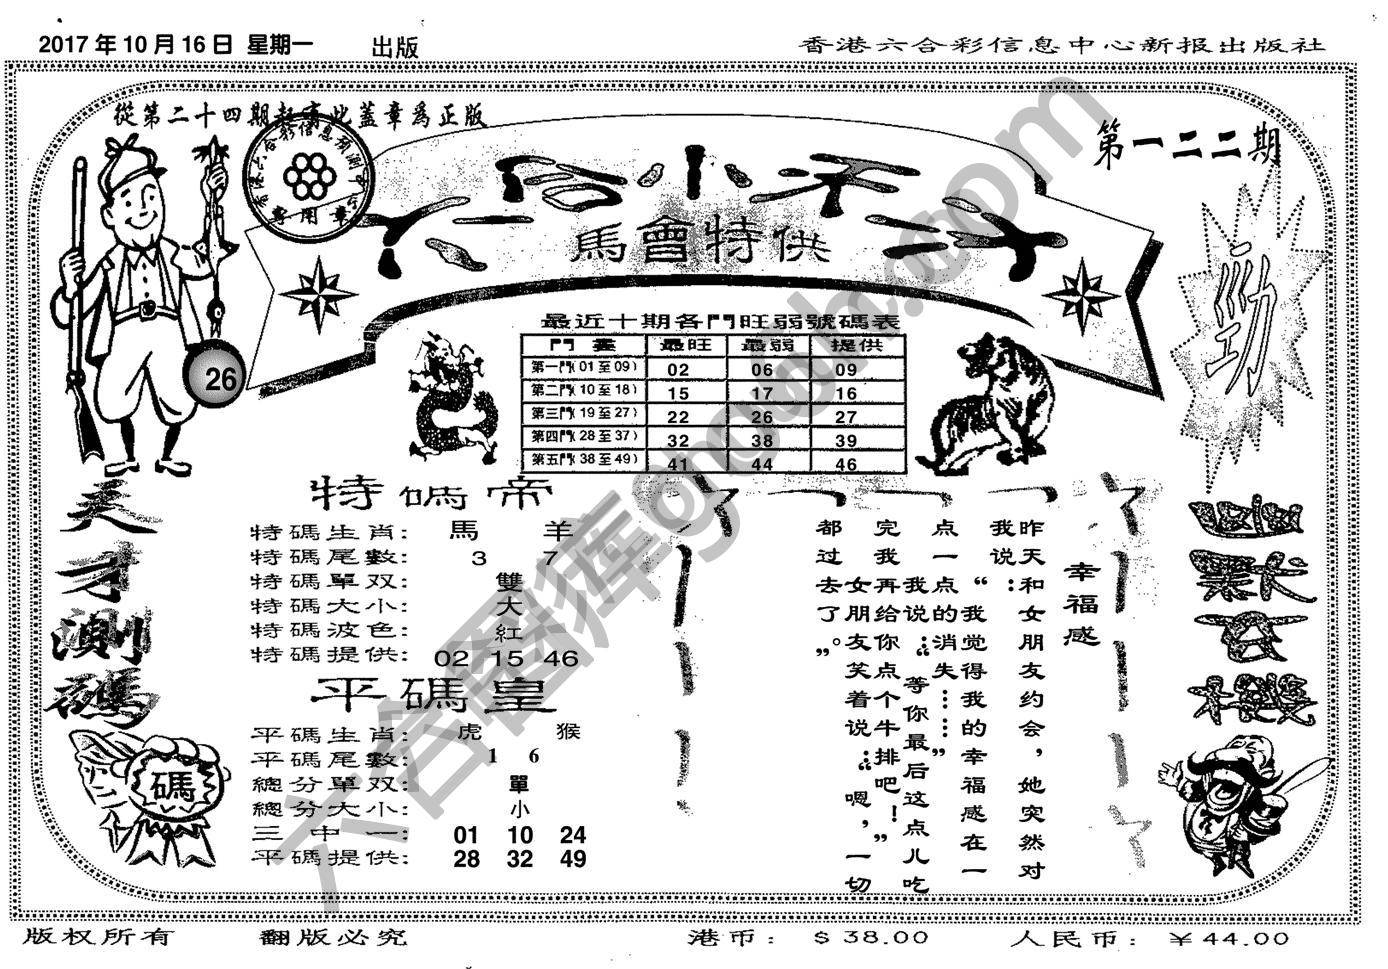 2017年10月16日 星期一 出版
香港六合彩信息中心新报出版社
從第二十四期起憲此蓋章爲正版
香港六合彩信息预测中心
專用章
第一二二期
六合小天才
馬會特供
勁
26
最近十期各門旺弱號碼表
門數 最旺 最弱 提供
第一門(01至09) 02 06 09
第二門(10至18) 15 17 16
第三門(19至27) 22 26 27
第四門(28至37) 32 38 39
第五門(38至49) 41 44 46
天才測碼
碼
特碼帝
特碼生肖: 馬 羊
特碼尾數: 3 7
特碼單双: 雙
特碼大小: 大
特碼波色: 紅
特碼提供: 02 15 46
平碼皇
平碼生肖: 虎 猴
平碼尾數: 1 6
總分單双: 單
總分大小: 小
三中一: 01 10 24
平碼提供: 28 32 49
幸福感
昨天和女朋友约会，她突然对
我说：“我觉得我的幸福感在一
点一点的消失……”
我说：“等你最后这点儿吃
完我再给你点个牛排吧！”
女朋友笑着说：“嗯，一切
都过去了。”
六合图库 ghcdh.com
版权所有 翻版必究 港币：$38.00 人民币：￥44.00